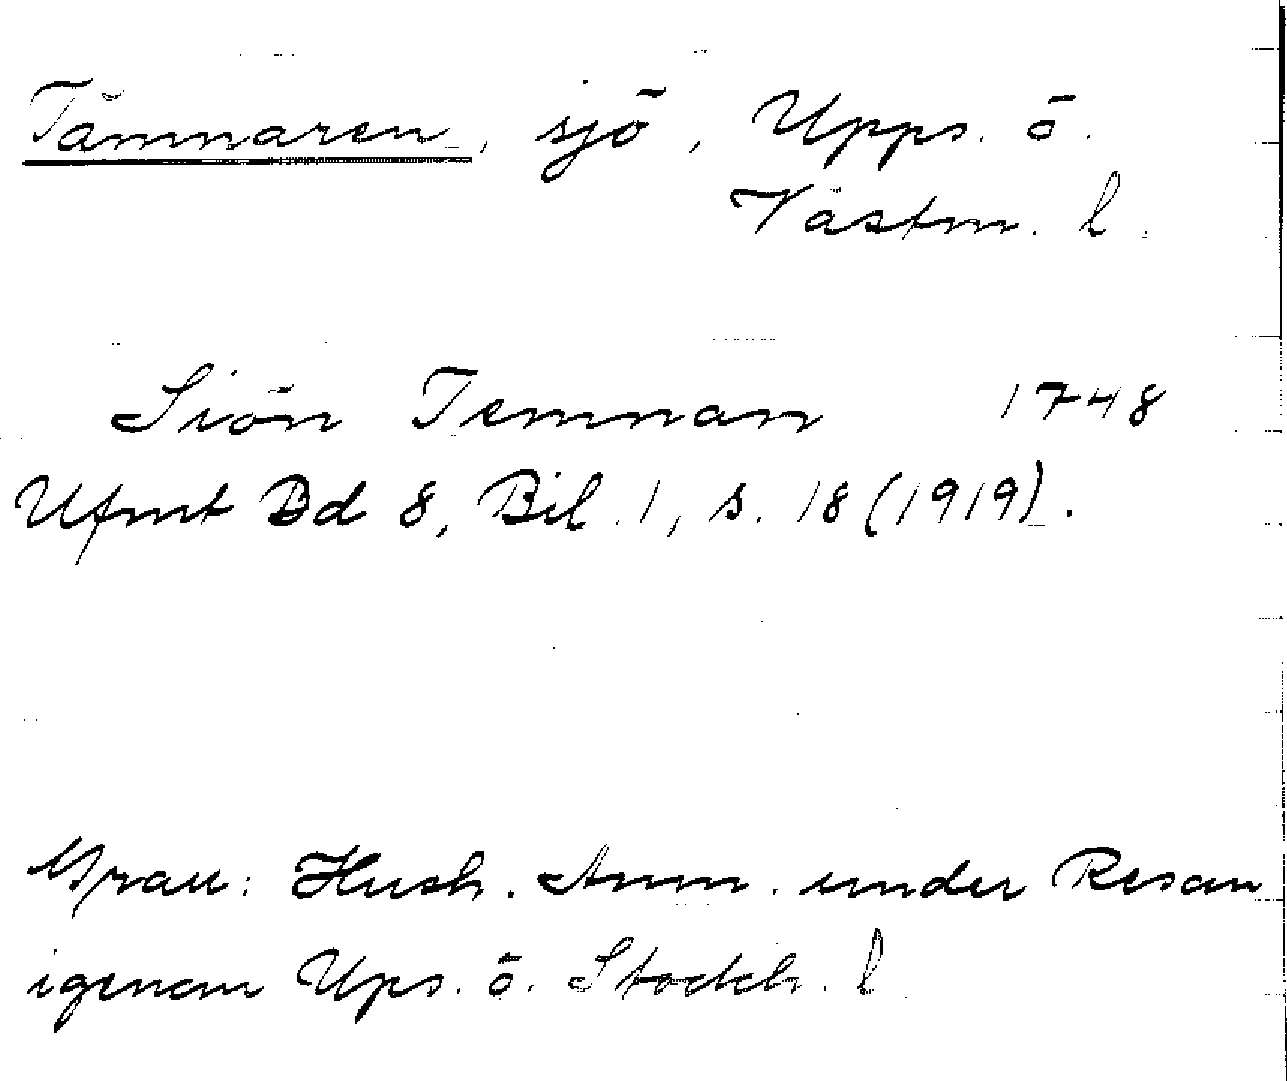 Tämnaren, sjö, Upps. ö.
Västm. l.
Siön Temnan 1748
Ufmt Bd 8, Bil. 1, s. 18 (1919).
Grau: Hush. Anm. under Resan
igenom Ups. ö. Stockh. l